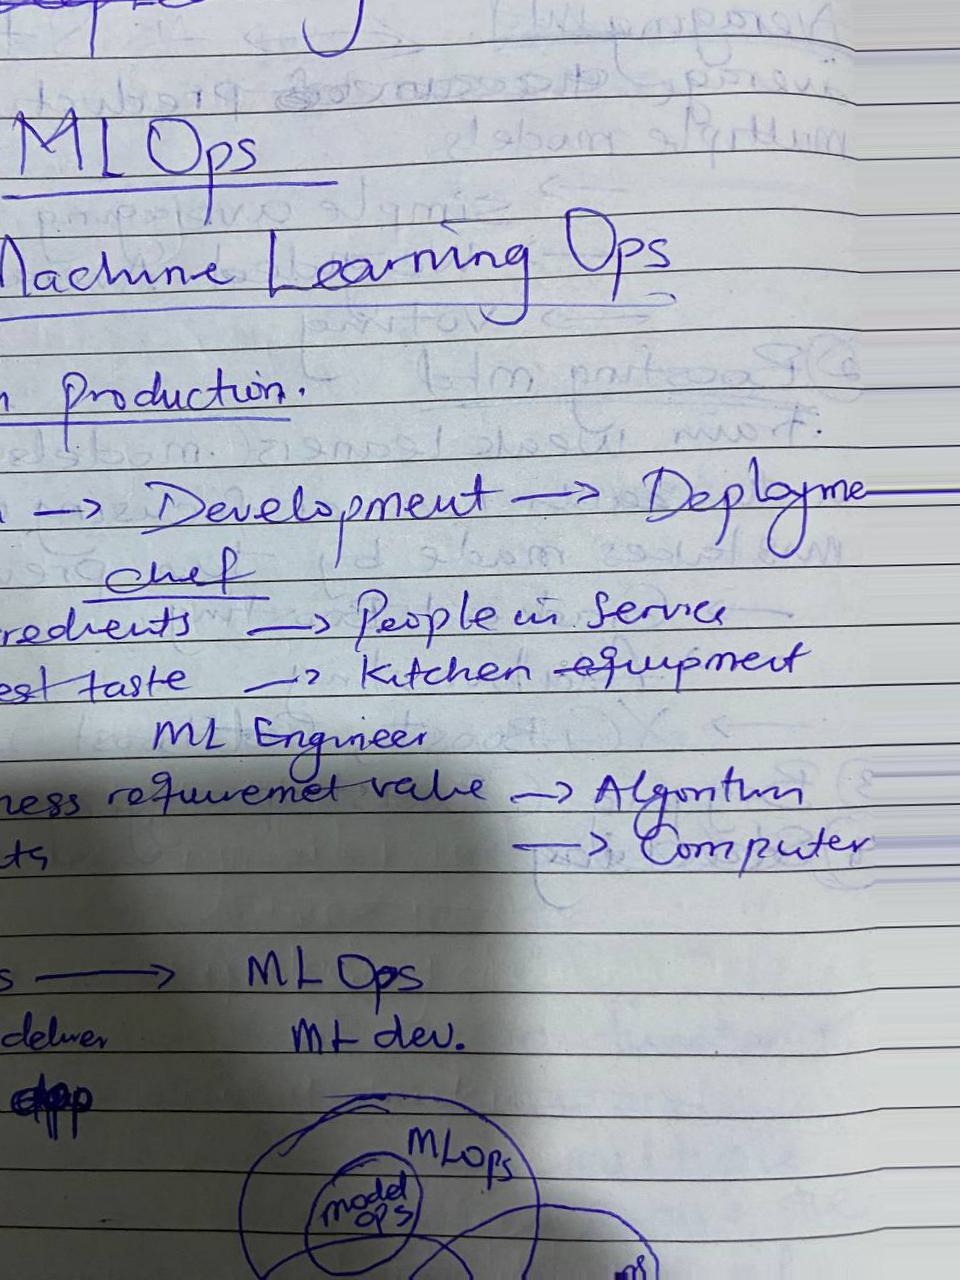 MLOps
Machine Learning Ops
n Production.
→ Development → Deployme
chef
redients → People in Service
est taste → Kitchen equipment
ML Engineer
ness requuremet value → Algorithm
ts → Computer
s → MLOps
deliver ML dev.
app
MLOps
model
OPS